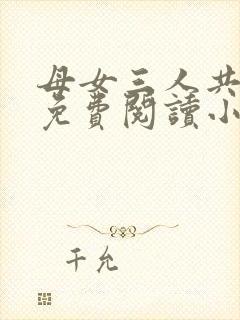 母女三人共
免費閱讀小
千允